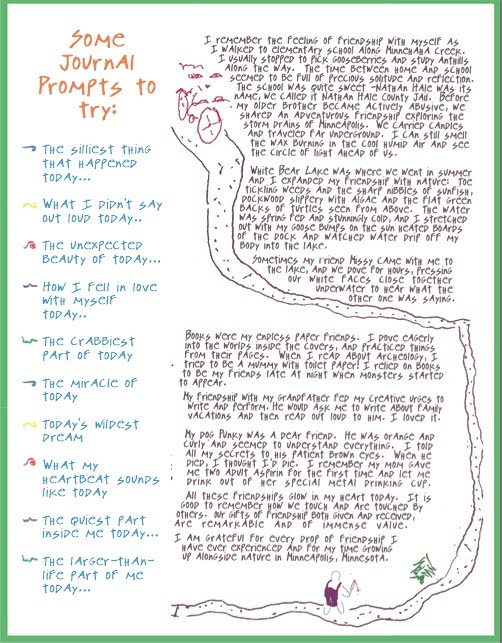 Some
Journal
Prompts to
try:
The silliest thing
that happened
today...
What I didn't say
out loud today..
The unexpected
beauty of today...
How I fell in love
with myself
today...
The crabbiest
part of today
The miracle of
today
Today's wildest
dream
What my
heartbeat sounds
like today
The quiest part
inside me today...
The larger-than-
life part of me
today...
I remember the feeling of friendship with myself as
I walked to elementary school along Minnehaha Creek.
I usually stopped to pick gooseberries and study anthills
along the way. The time between home and school
seemed to be full of precious solitude and reflection.
The school was quite sweet -Nathan Hale was its
name, we called it Nathan Hale County Jail. Before
my older brother became actively abusive, we
shared an adventurous friendship exploring the
storm drains of Minneapolis. We carried candles
and traveled far underground. I can still smell
the wax burning in the cool humid air and see
the circle of light ahead of us.
White Bear Lake was where we went in summer
and I expanded my friendship with nature: Toe
tickling weeds and the sharp nibbles of sunfish,
dockwood slippery with algae and the flat green
backs of turtles seen from above. The water
was spring fed and stunningly cold, and I stretched
out with my goose bumps on the sun heated boards
of the dock and watched water drip off my
body into the lake.
Sometimes my friend Missy came with me to
the lake, and we dove for hours, pressing
our white faces close together
underwater to hear what the
other one was saying.
Books were my endless paper friends. I dove eagerly
into the worlds inside the covers, and practiced things
from their pages. When I read about archeology, I
tried to be a mummy with toilet paper! I relied on books
to be my friends late at night when monsters started
to appear.
My friendship with my grandfather fed my creative urges to
write and perform. He would ask me to write about family
vacations and then read out loud to him. I loved it.
My dog Punky was a dear friend. He was orange and
curly and seemed to understand everything. I told
all my secrets to his patient brown eyes. When he
died, I thought I'd die. I remember my mom gave
me two adult aspirin for the first time and let me
drink out of her special metal drinking cup.
All these friendships glow in my heart today. It is
good to remember how we touch and are touched by
others. Our gifts of friendship both given and received,
are remarkable and of immense value.
I am grateful for every drop of friendship I
have ever experienced and for my time growing
up alongside nature in Minneapolis, Minnesota.